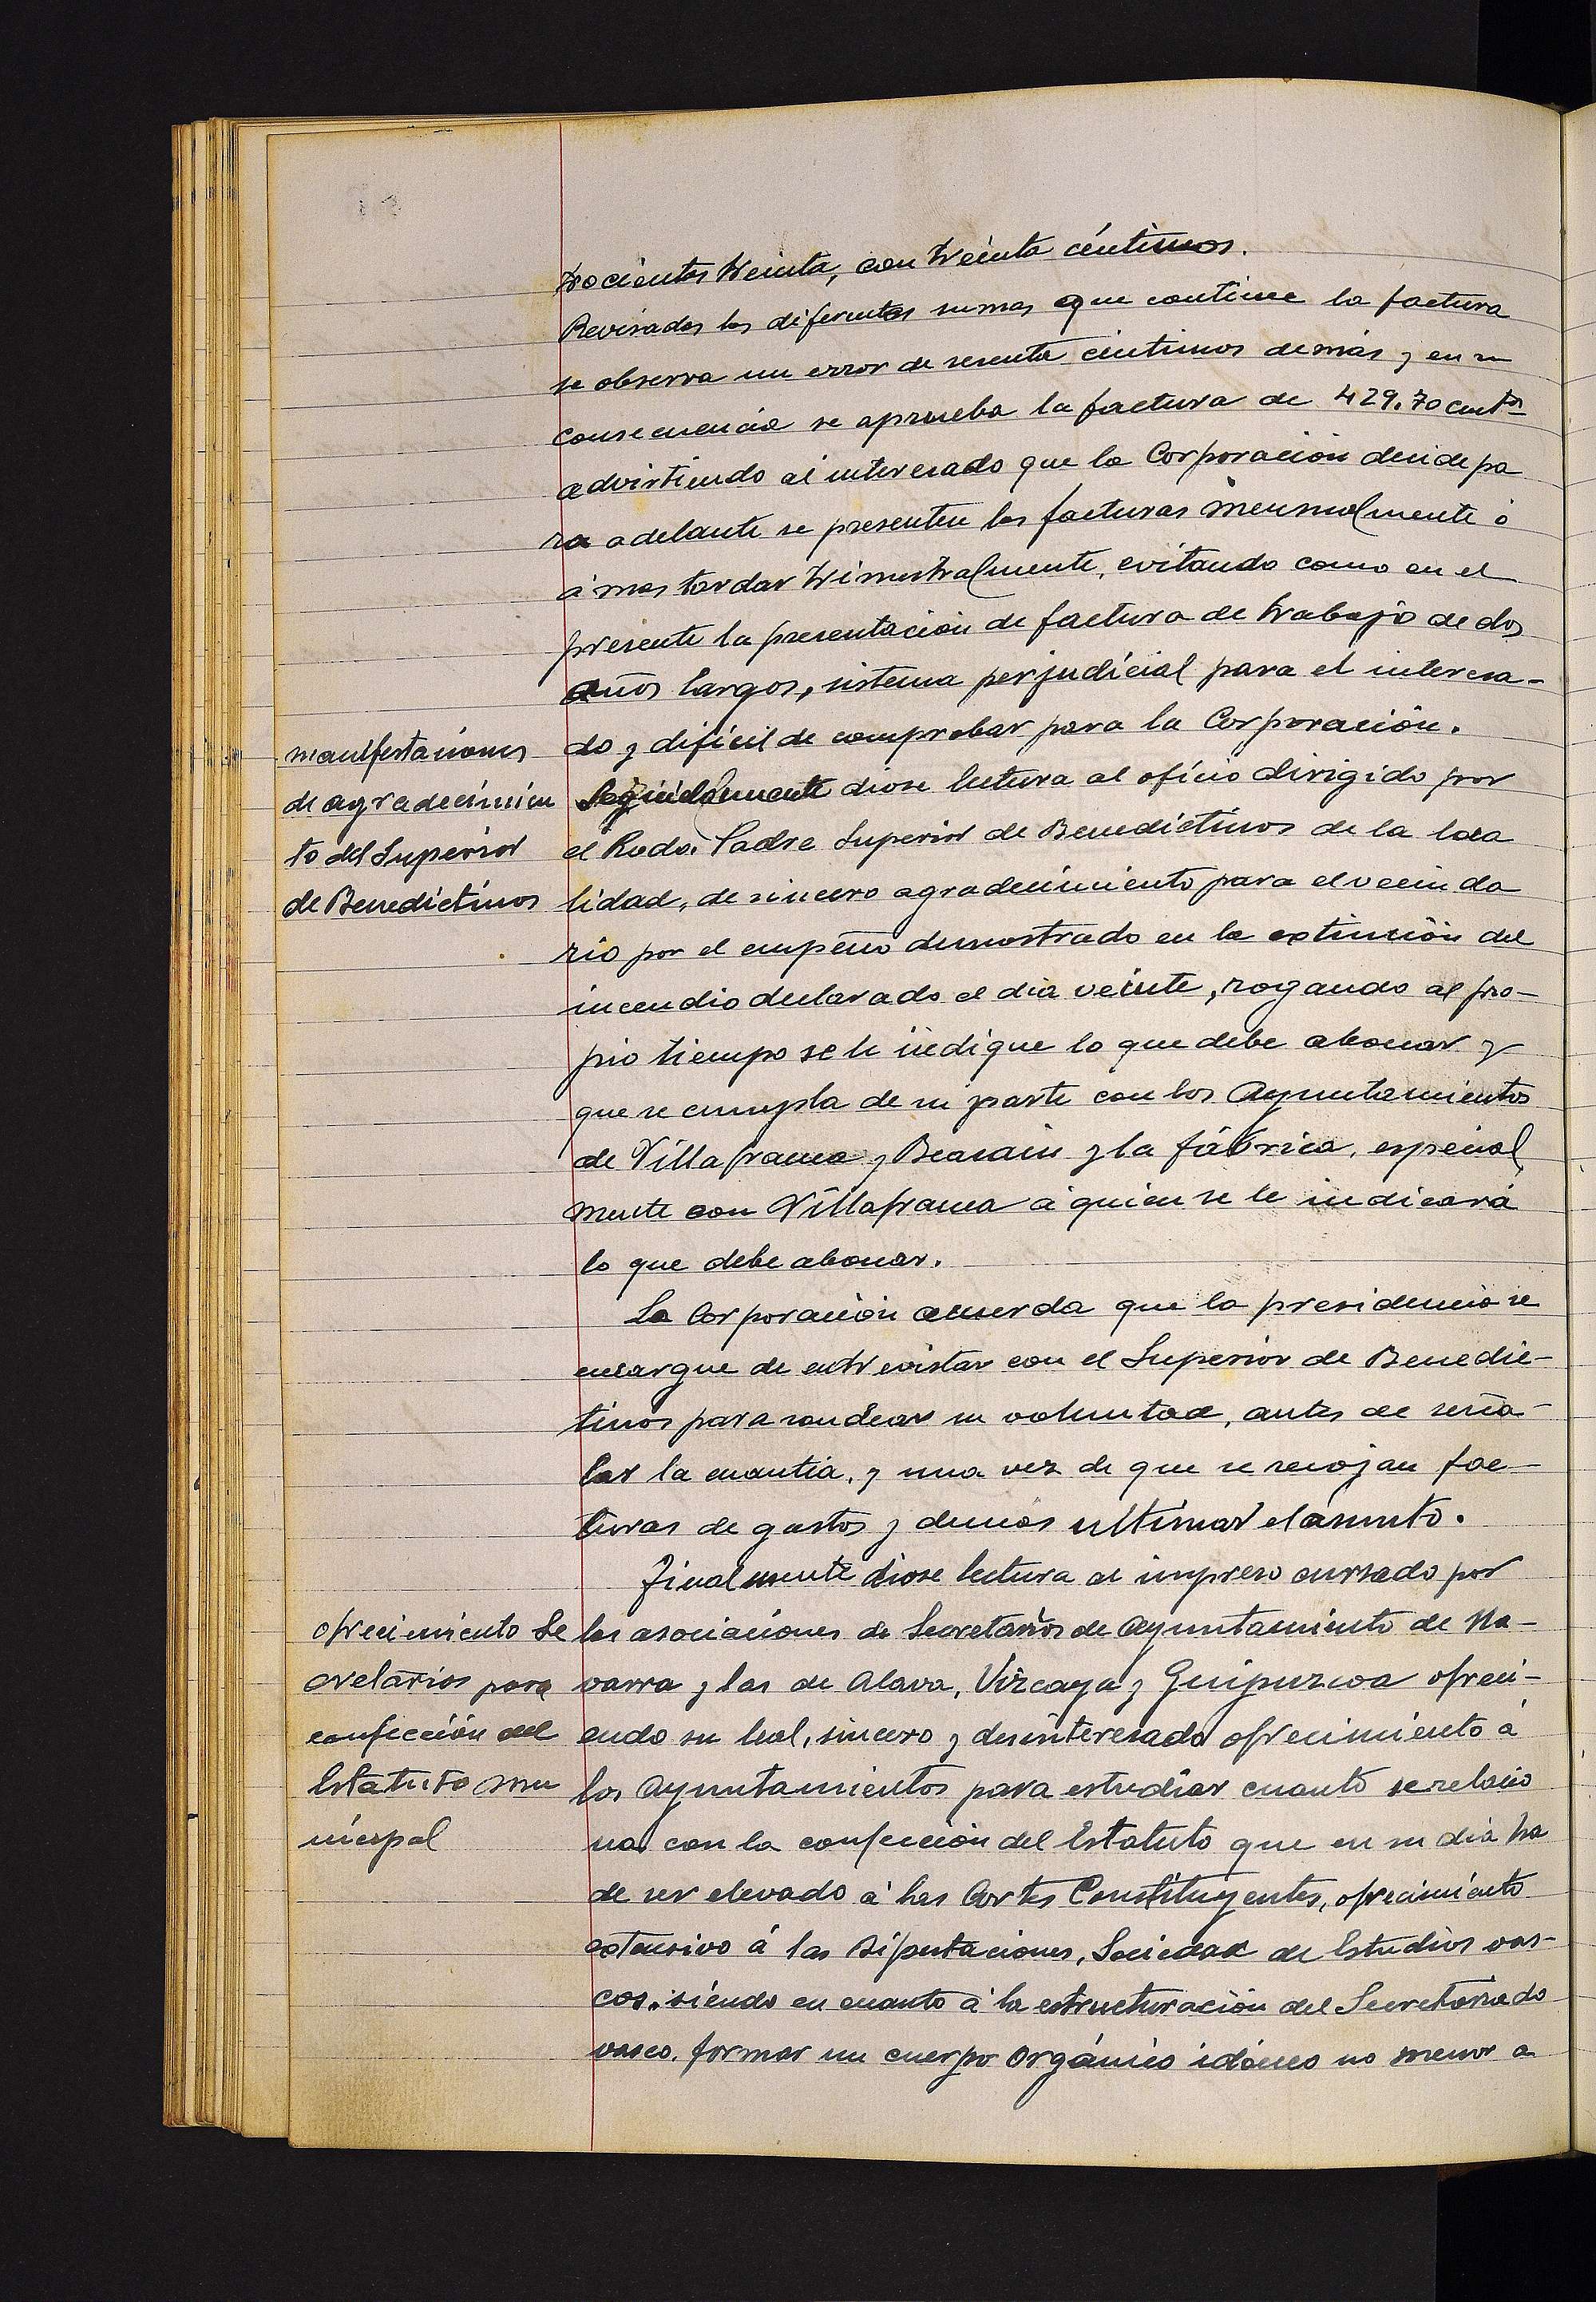 trocientas treinta, con treinta céntimos.
Revisadas las diferentes sumas que contiene la factura
se observa un error de sesenta céntimos demás y en su
consecuencia se aprueba la factura de 429.70 cents
advirtiendo al interesado que la Corporación decide pa
ra adelante se presenten las facturas mensualmente ó
á mas tardar trimestralmente, evitando como en el
presente la presentación de factura de trabajo de dos
años largos, sistema perjudicial para el interesa-
do y difícil de comprobar para la Corporación.
manifestaciones
de agradecimien
to del Superior
de Benedictinos
Seguidamente diose lectura al oficio dirigido por
el Rvdo. Padre Superior de Benedictinos de la loca
lidad, de sincero agradecimiento para el vecinda
rio por el empeño demostrado en la extinción del
incendio declarado el dia veinte, rogando al pro-
pio tiempo se le indique lo que debe abonar y
que se cumpla de su parte con los Ayuntamientos
de Villafranca y Beasain y la fábrica, especial
mente con Villafranca á quien se le indicará
lo que debe abonar.
La Corporación acuerda que la presidencia se
encargue de entrevistar con el Superior de Benedic-
tinos para sondear su voluntad, antes de seña-
lar la cuantía, y una vez de que se recojan fac-
turas de gastos y demás ultimar el asunto.
Finalmente diose lectura al impreso cursado por
ofrecimiento Se
cretarios para
confección del
Estatuto mu
nicipal
las asociaciones de Secretarios de Ayuntamiento de Na-
varra y las de Alava, Vizcaya y Guipuzcoa ofreci-
endo su leal, sincero y desinteresado ofrecimiento á
los Ayuntamientos para estudiar cuanto se relacio
na con la confección del Estatuto que en su dia ha
de ser elevado á las Cortes Constituyentes, ofrecimiento
extensivo á las Diputaciones, Sociedad de Estudios vas-
cos, siendo en cuanto á la estructuración del Secretariado
vasco, formar un cuerpo orgánico idóneo no menor a